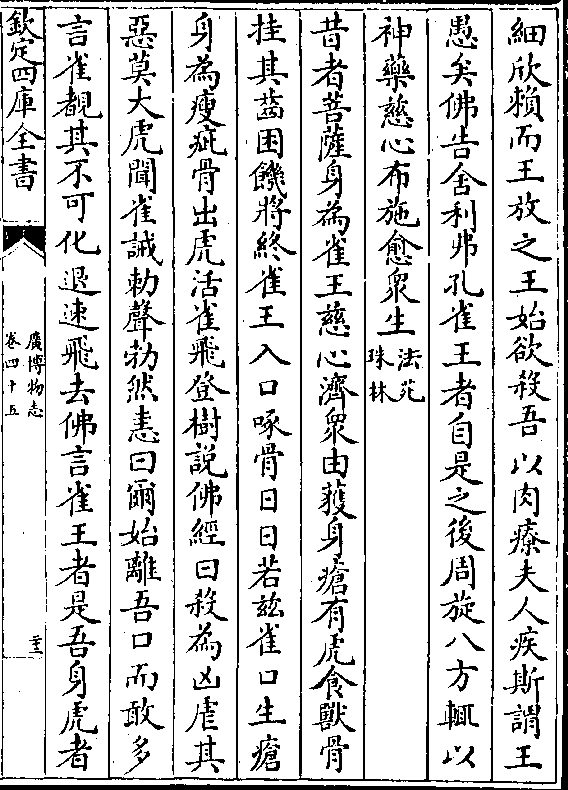 細欣賴而王放之王始欲殺吾以肉療夫人疾斯謂王
愚矣佛告舍利弗孔雀王者自是之後周旋八方輒以
神藥慈心布施愈衆生法苑珠林
昔者菩薩身為雀王慈心濟衆由䕶身瘡有虎食獸骨
挂其齒困饑將終雀王入口啄骨日日若兹雀口生瘡
身為瘦疵骨出虎活雀飛登樹説佛經曰殺為凶虐其
惡莫大虎聞雀誡勅聲勃然恚曰爾始離吾口而敢多
言雀覩其不可化退速飛去佛言雀王者是吾身虎者
欽定四庫全書
廣博物志
卷四十五
二十三